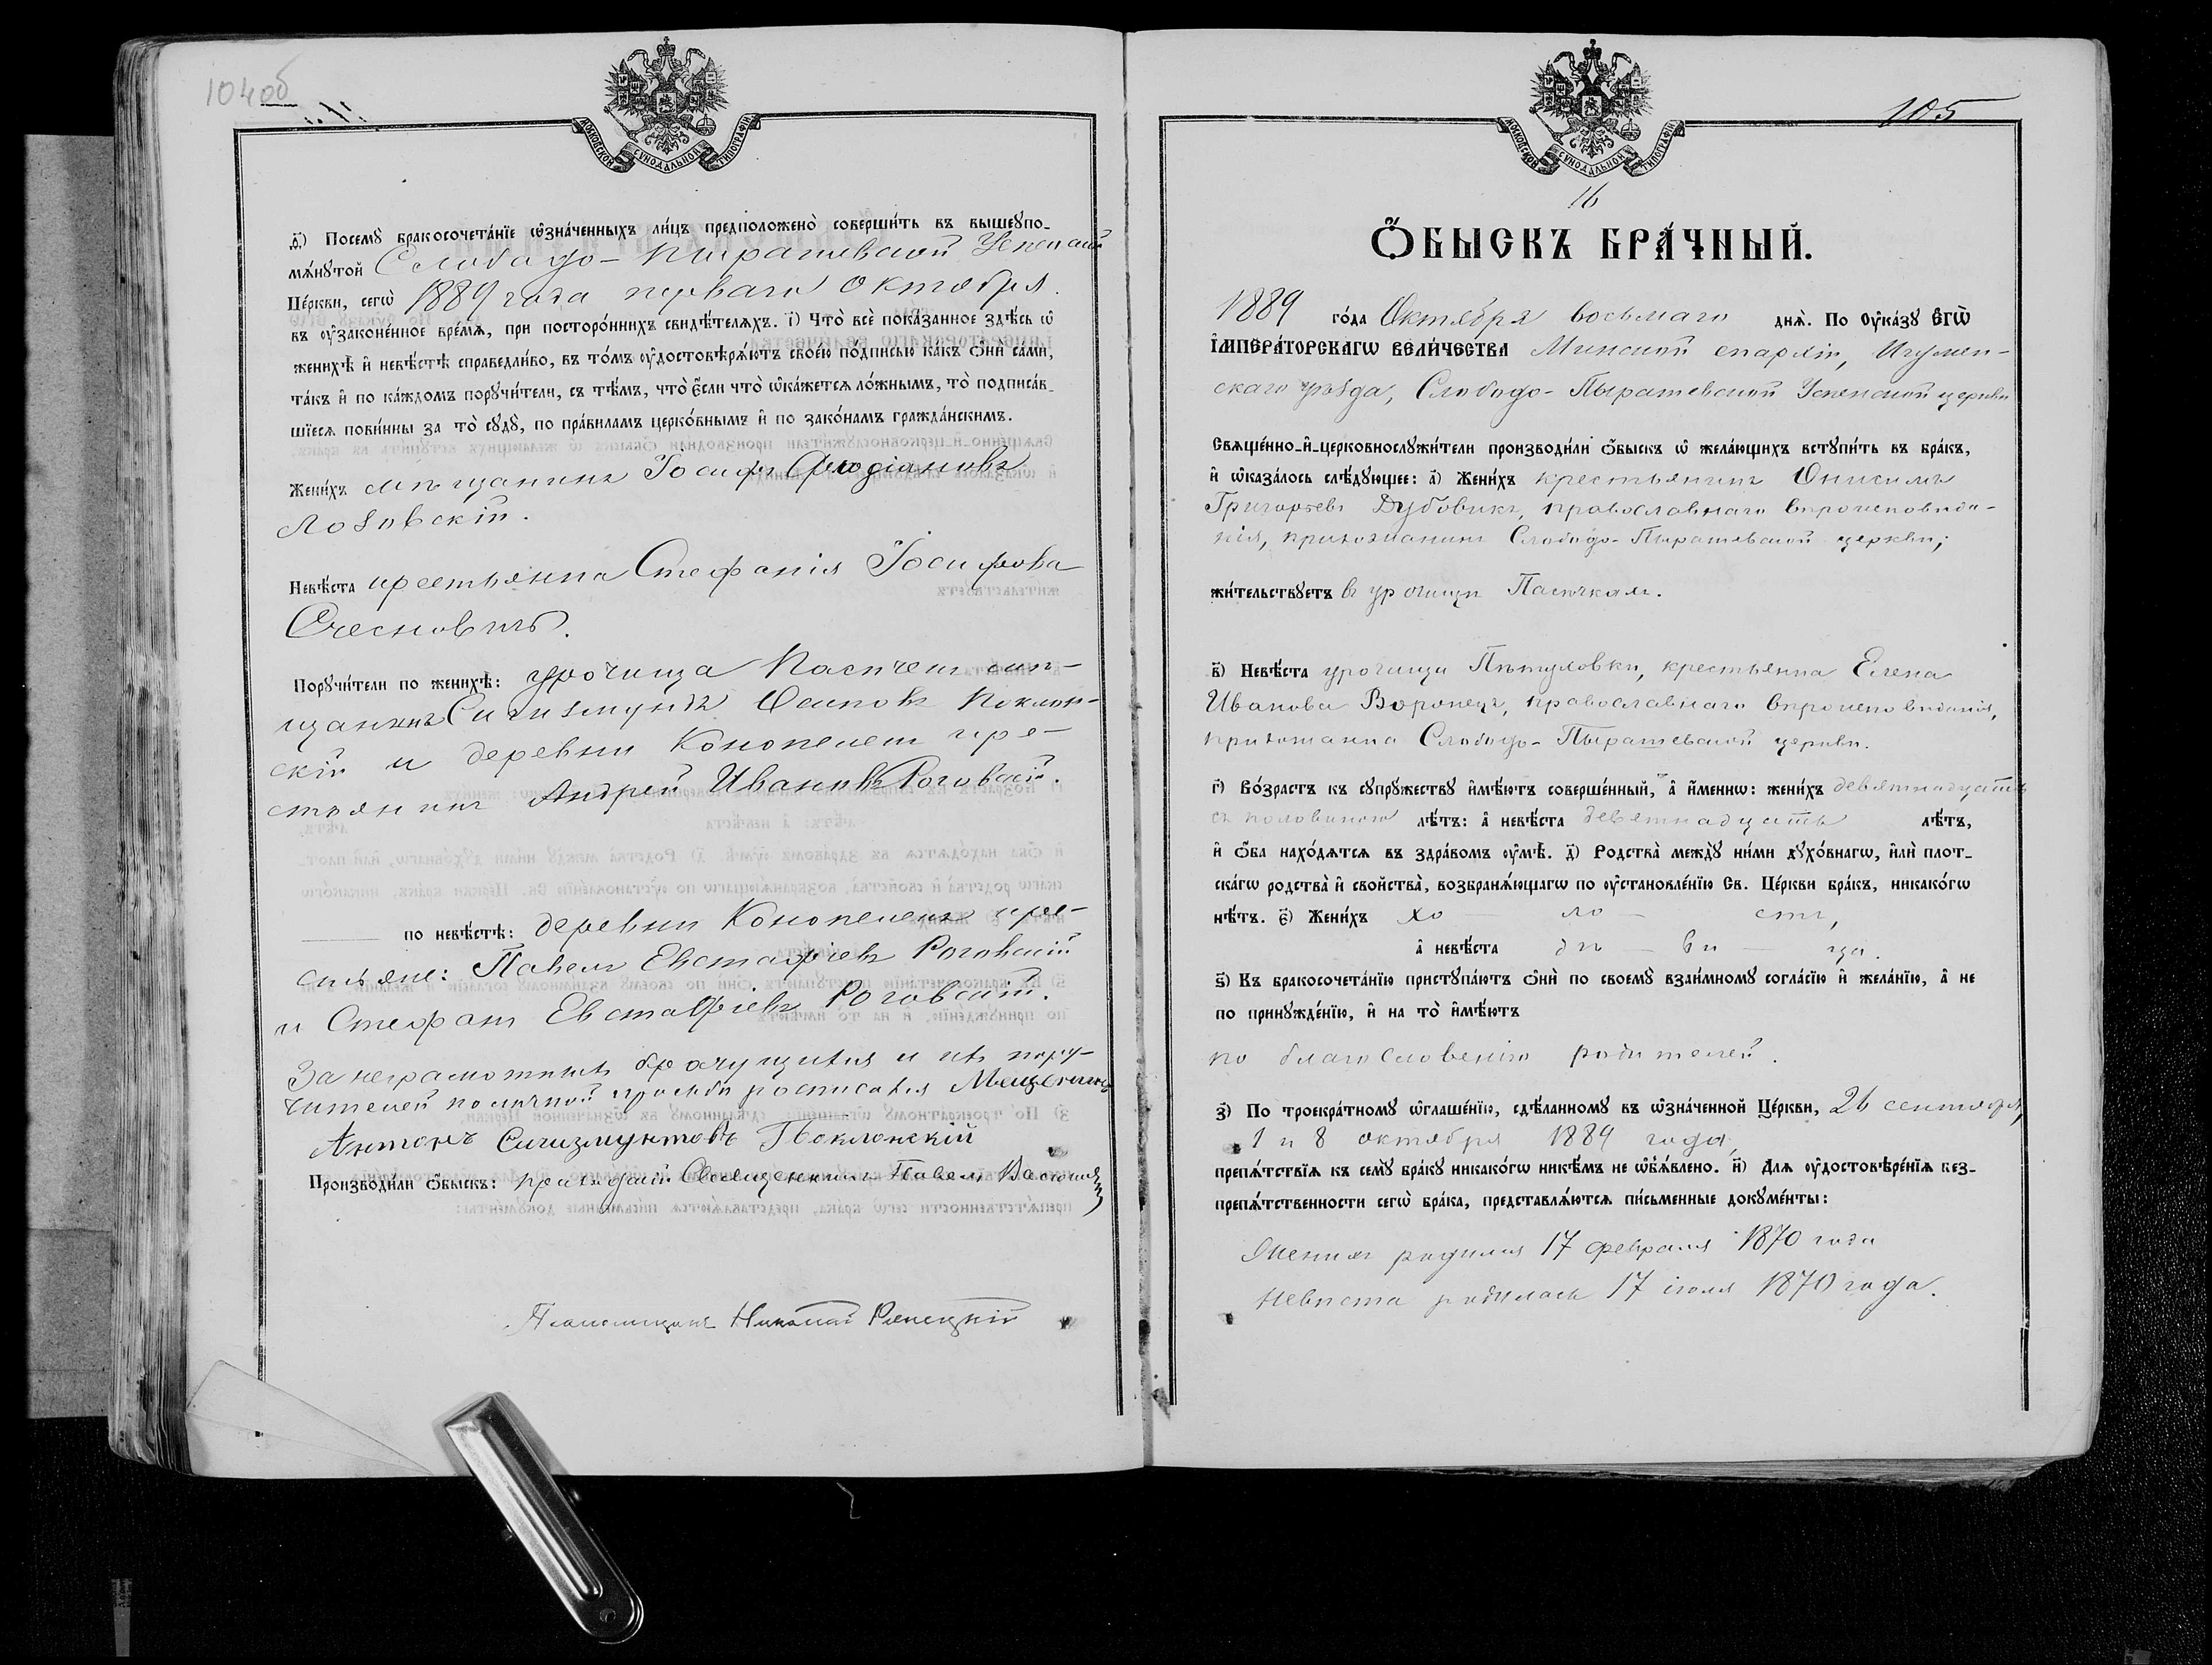 104об
МОСКОВСКОЙ СѴНОДАЛЬНОЙ ТИПОГРАФІИ
Посемꙋ бракосочета́нїе ѡ҆зна́ченныхъ ли́цъ предположено̀ соверши́ть въ вышеꙋпо-
мѧ́нꙋтой Слободо-Пырашевской Успенской
Це́ркви, сегѡ̀ 1889 года перваго Октября.
въ оу҆законе́нное вре́мѧ, при посторо́ннихъ свидѣ́телѧхъ. і҃) Что̀ всѐ пока́занное здѣ́сь ѡ҆
женихѣ̀ и҆ невѣ́стѣ справедли́во, въ то́мъ оу҆достовѣрѧ́ютъ свое́ю по́дписью ка́къ ѻ҆нѝ са́ми,
та́къ и҆ по ка́ждомъ порꙋчи́тели, съ тѣ́мъ, что̀ є҆́сли что̀ ѡ҆ка́жетсѧ ло́жнымъ, то̀ подписа́в-
шїесѧ пови́нны за то̀ сꙋдꙋ̀, по пра́виламъ церко́внымъ и҆ по зако́намъ гражда́нскимъ.
Жени́хъ мѣщанинъ Іосифъ
Лозовскій.
Невѣ́ста крестьянка Стефанія Іосифова
Счесновичъ.
Порꙋчи́тели по женихѣ̀: урочища Пасѣчекъ мѣ-
щанинъ Сигизмундъ Осиповъ Поклон-
скій и деревни Конопелекъ кре-
стьянинъ Андрей Ивановъ Роговскій.
по невѣ́стѣ: деревни Конопелекъ кре-
стьяне: Павелъ Евстафіевъ Роговскій
и Стефанъ Евстафіевъ Роговскій.
За неграмотныхъ брачущихся и ихъ пору-
чителей по личной просьбѣ росписался Мещенинъ
Антонъ Сигизмунтовъ Поклонскій
Производи́ли ѻ҆́быскъ: приходскій Священникъ Павелъ
Псаломщикъ Николай
105
МОСКОВСКОЙ СѴНОДАЛЬНОЙ ТИПОГРАФІИ
16
Ѻ҆́БЫСКЪ БРА́ЧНЫЙ.
1889 го́да Октября восьмаго днѧ̀. По Оу҆ка́зꙋ Є҆гѡ̀
І҆МПЕРА́ТОРСКАГѠ ВЕЛИ́ЧЕСТВА Минской епархіи, Игумен-
скаго уѣзда, Слободо-Пырашевской Успенской церкви
Свѧще́нно-и҆-церковнослꙋжи́тели производи́ли ѻ҆́быскъ ѡ҆ жела́ющихъ встꙋпи́ть въ бра́къ,
и҆ ѡ҆каза́лось слѣ́дꙋющее: а҃) Жени́хъ крестьянинъ Онисимъ
Григорьевъ Дубовикъ, православнаго вѣроисповѣда-
нія, прихожанинъ Слободо-Пырашевской церкви;
жи́тельствꙋетъ въ урочищѣ Пасѣчкахъ.
в҃) Невѣ́ста урочища Пѣтуловки, крестьянка Елена
Иванова Воронецъ, православнаго вѣроисповѣданія,
прихожанка Слободо-Пырашевской церкви.
г҃) Во́зрастъ къ сꙋпрꙋ́жествꙋ и҆мѣ́ютъ соверше́нный, а҆̀ и҆́меннѡ: жени́хъ девятнадцать
съ половиною лѣ́тъ: а҆̀ невѣ́ста девятнадцать лѣ́тъ,
и҆ ѻ҆́ба нахо́дѧтсѧ въ здра́вомъ оу҆мѣ̀. д҃) Родства̀ междꙋ̀ ни́ми дꙋхо́внагѡ, и҆лѝ плот-
ска́гѡ родства̀ и҆ сво́йства̀, возбранѧ́ющагѡ по оу҆становле́нїю Св. Це́ркви бра́къ, никако́гѡ
нѣ́тъ. є҃) Жени́хъ хо ло - стъ,
а҆̀ невѣ́ста дѣ - ви - ца.
ѕ҃) Къ бракосочета́нїю пристꙋпа́ютъ ѻ҆нѝ по своемꙋ̀ взаи́мномꙋ согла́сїю и҆ жела́нїю, а҆̀ не
по принꙋжде́нїю, и҆ на то̀ и҆мѣ́ютъ
по благословенію родителей.
з҃) По троекра́тномꙋ ѡ҆глаше́нїю, сдѣ́ланномꙋ въ ѡ҆зна́ченной Це́ркви, 26 сентября,
1 и 8 октября 1889 года,
препѧ́тствїѧ къ семꙋ̀ бра́кꙋ никако́гѡ никѣ́мъ не ѡ҆б̾ѧ́влено. и҃) Длѧ оу҆достовѣре́нїѧ без-
препѧ́тственности сегѡ̀ бра́ка, представлѧ́ютсѧ пи́сьменные докꙋме́нты:
Женихъ родился 17 февраля 1870 года
Невѣста родилась 17 іюля 1870 года.